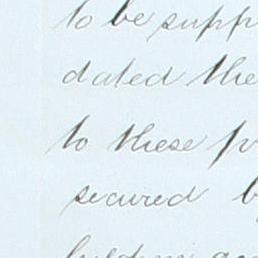 to be supp
dated the
to these p
secured b